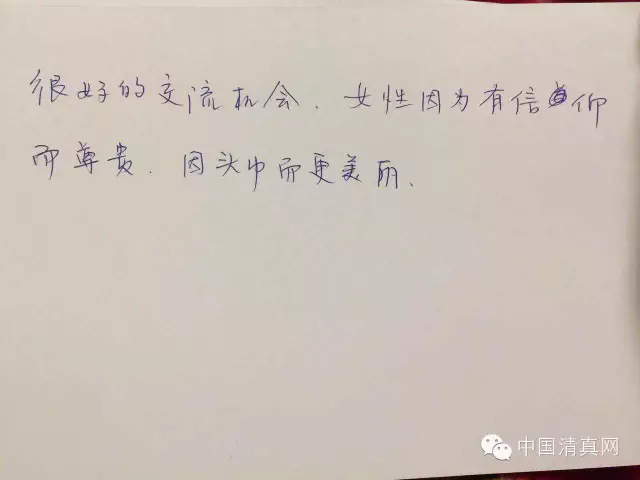 很好的交流机会. 女性因为有信仰
而尊贵. 因头巾而更美丽.
中国清真网